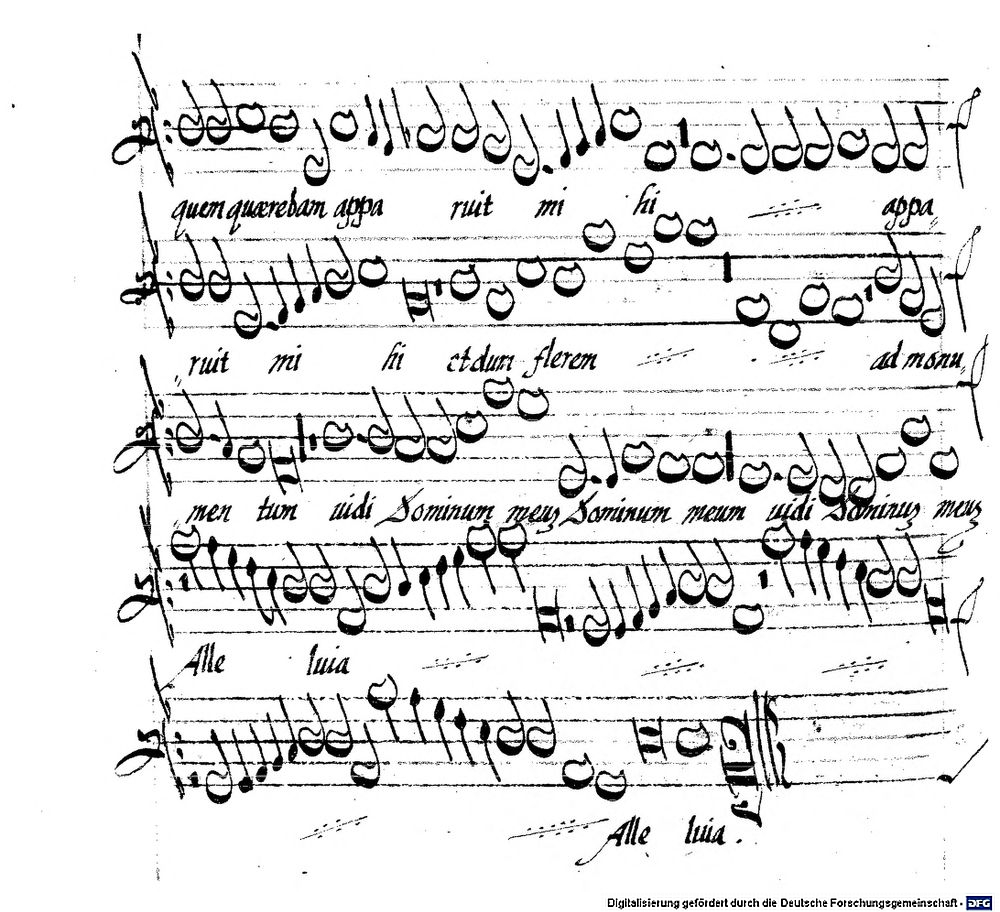 quem quærebam appa ruit mi hi appa
ruit mi hi et dum flerem ad monu
men tum uidi Dominum meus Dominum meum uidi Dominus meus
Alle luia
Alle luia.
Digitalisierung gefördert durch die Deutsche Forschungsgemeinschaft - DFG